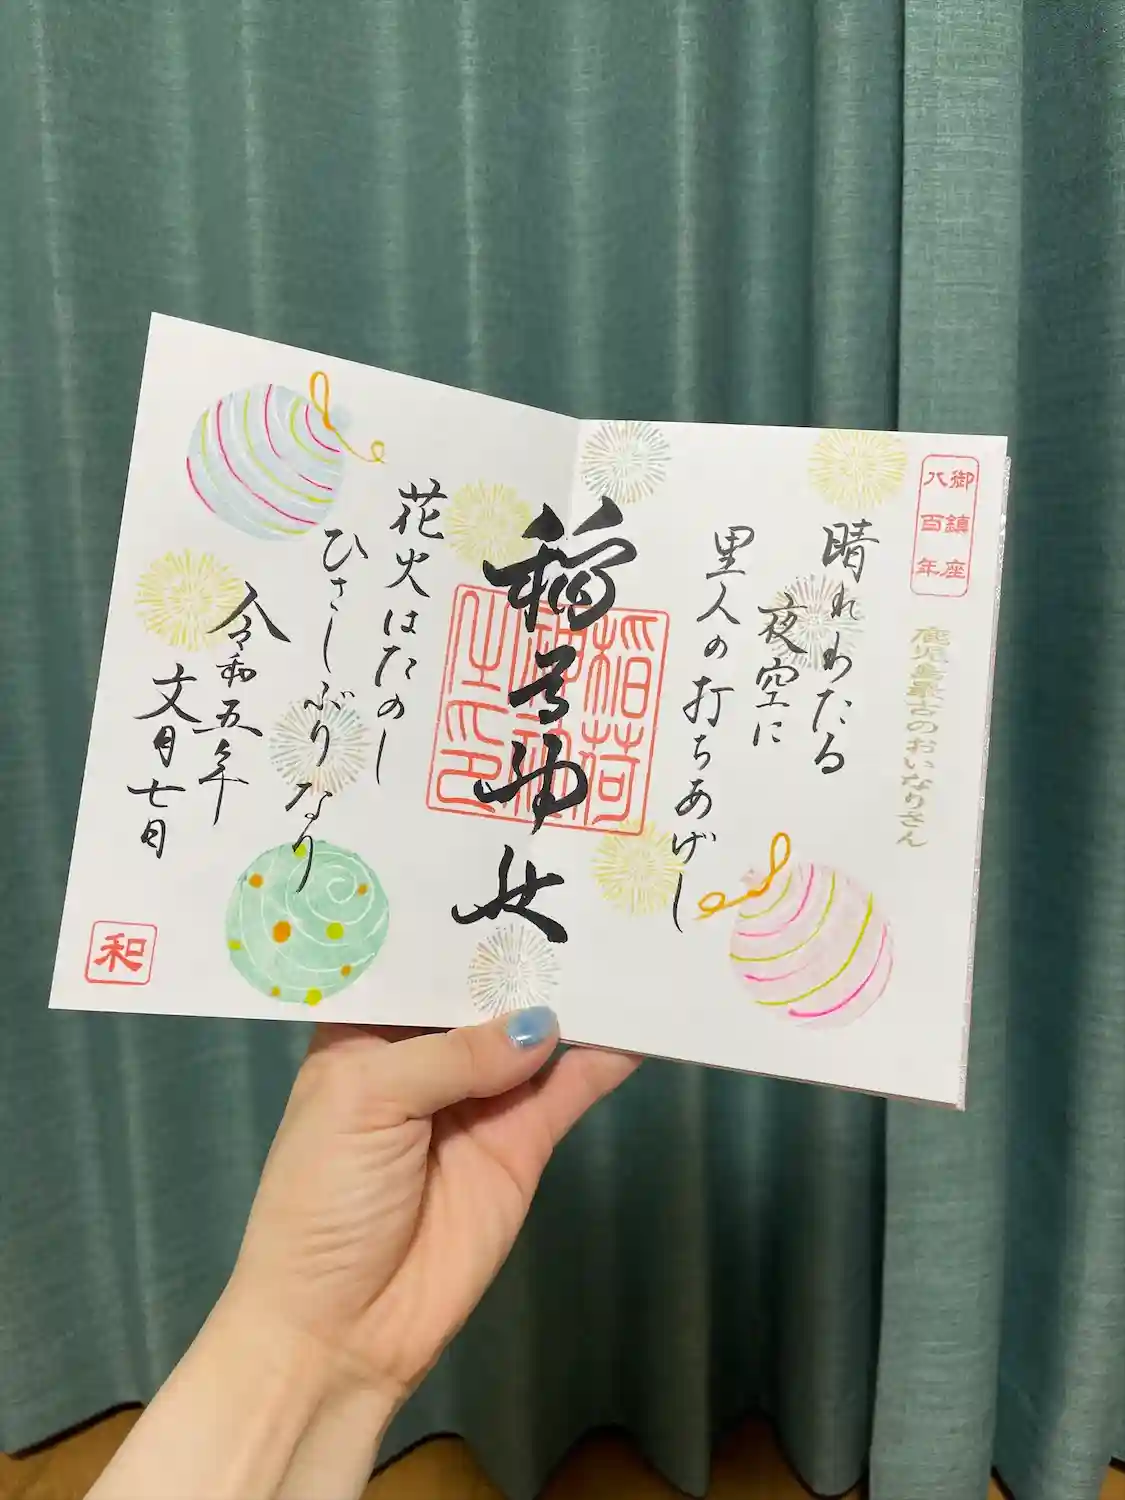 御鎮座
八百年
鹿児島最古のおいなりさん
晴れわたる
夜空に
里人の打ちあげし
稲荷神社
稲荷
神社
之印
花火はたのし
ひさしぶりなり
令和五年
文月七日
和